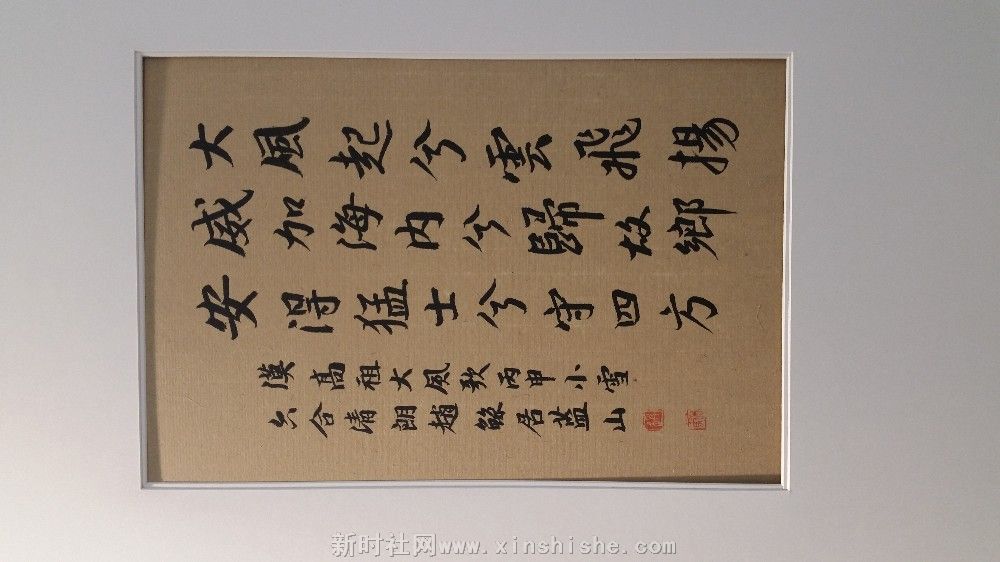 大風起兮雲飛揚
威加海内兮歸故鄉
安得猛士兮守四方
漢高祖大風歌丙申小雪
六合清朗趙
居藍山
新时社网www.xinshishe.com